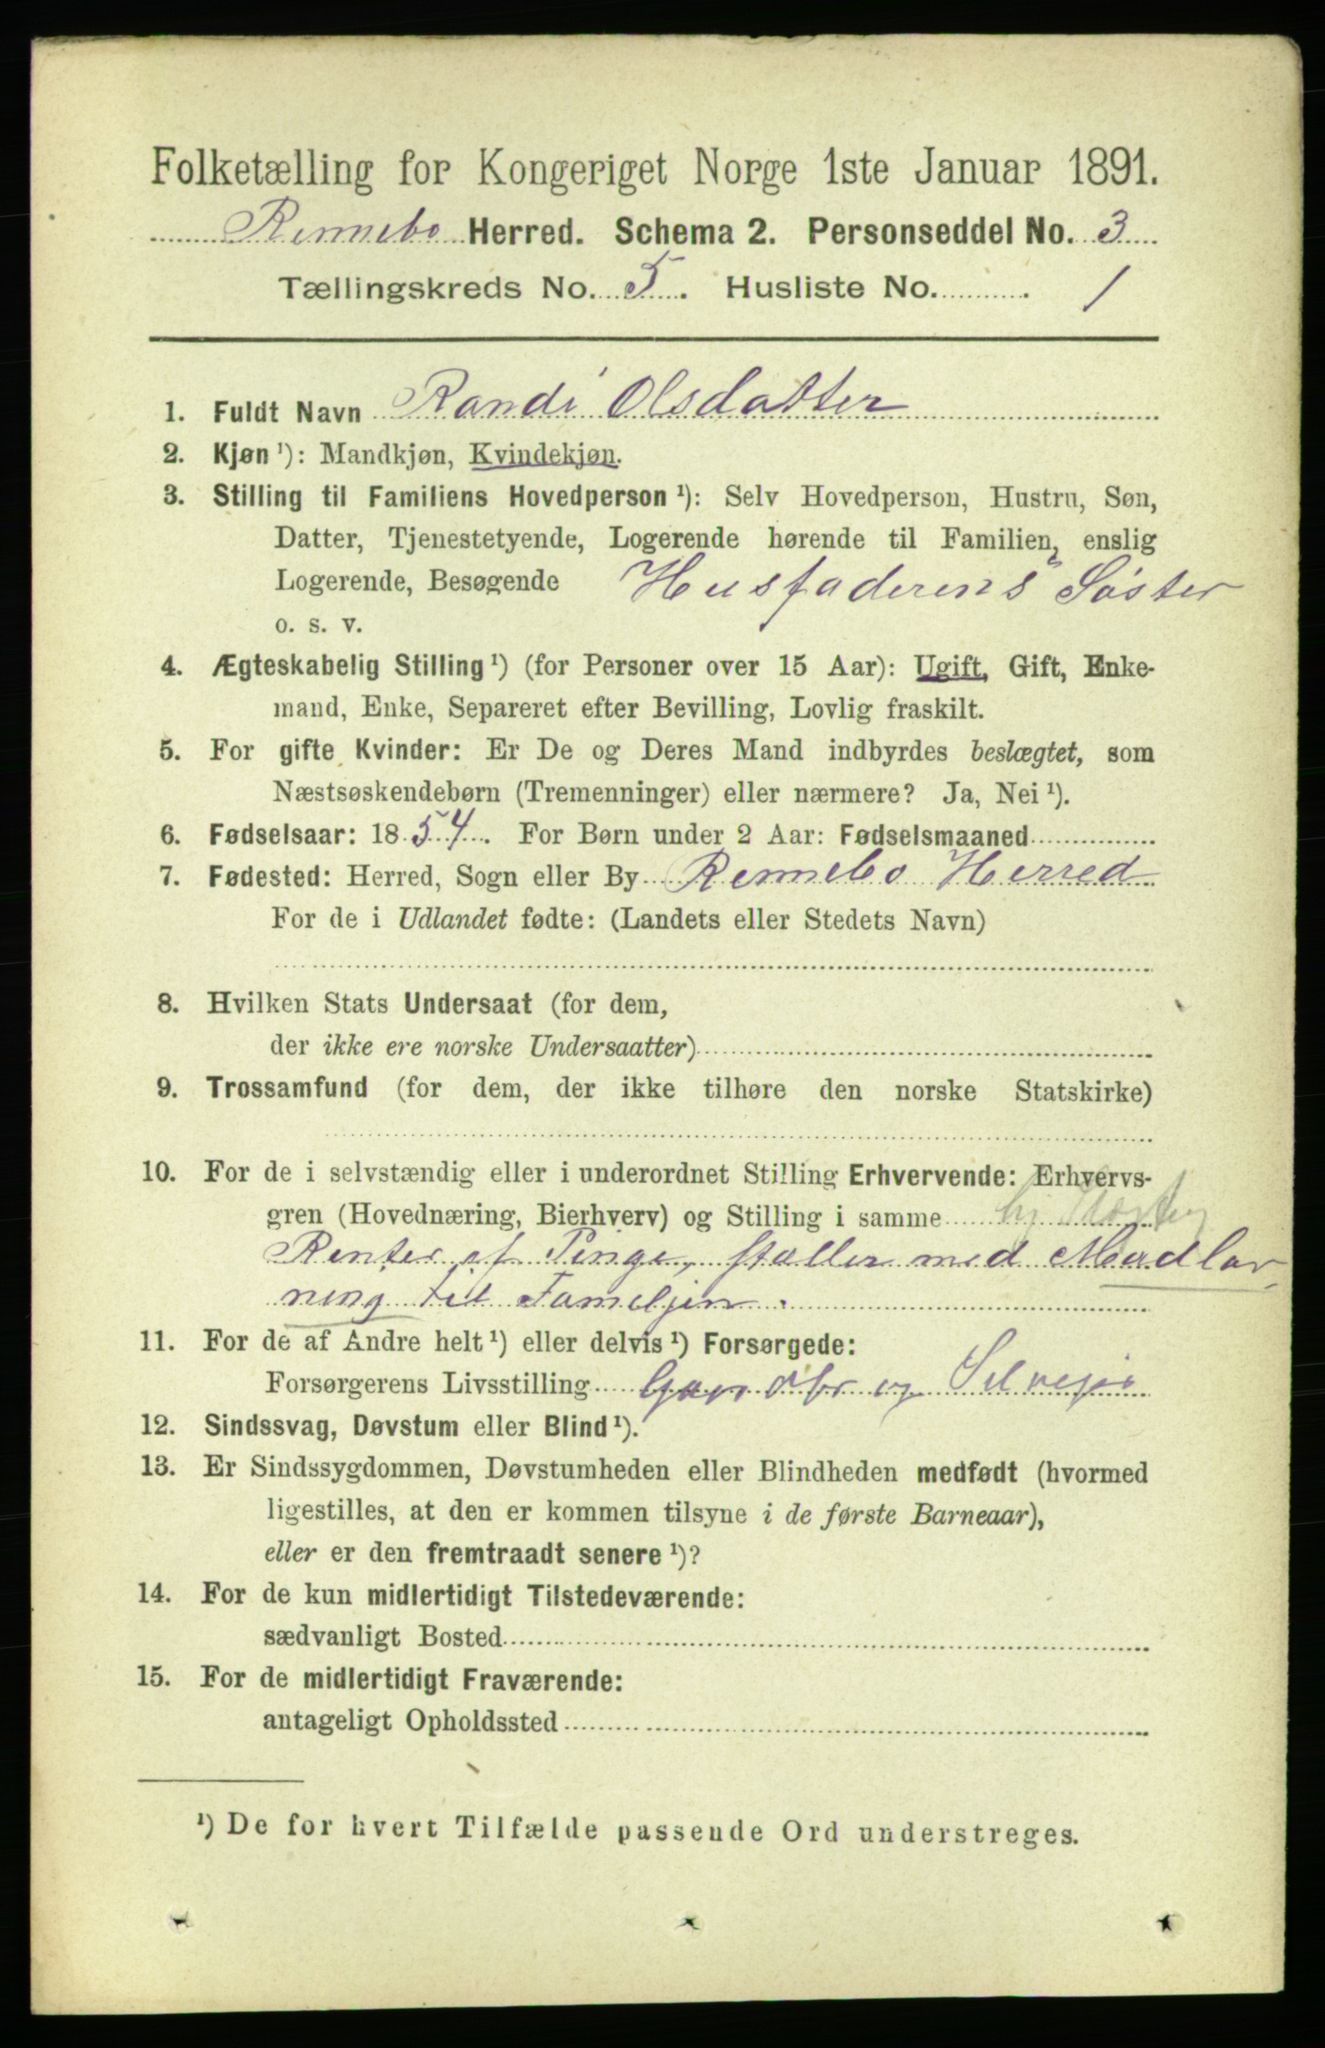 Folketælling for Kongeriget Norge 1ste Januar 1891.
Rennebo Herred. Schema 2. Personseddel No. 3
Tællingskreds No. 5. Husliste No. 1
1. Fuldt Navn Randi Olsdatter
2. Kjøn ¹): Mandkjøn, Kvindekjøn.
3. Stilling til Familiens Hovedperson ¹): Selv Hovedperson, Hustru, Søn,
Datter, Tjenestetyende, Logerende hørende til Familien, enslig
Logerende, Besøgende Husfaderens Søster
o. s. v.
4. Ægteskabelig Stilling ¹) (for Personer over 15 Aar): Ugift, Gift, Enke-
mand, Enke, Separeret efter Bevilling, Lovlig fraskilt.
5. For gifte Kvinder: Er De og Deres Mand indbyrdes beslægtet, som
Næstsøskendebørn (Tremenninger) eller nærmere? Ja, Nei ¹).
6. Fødselsaar: 1854. For Børn under 2 Aar: Fødselsmaaned
7. Fødested: Herred, Sogn eller By Rennebo Herred
For de i Udlandet fødte: (Landets eller Stedets Navn)
8. Hvilken Stats Undersaat (for dem,
der ikke ere norske Undersaatter)
9. Trossamfund (for dem, der ikke tilhøre den norske Statskirke)
10. For de i selvstændig eller i underordnet Stilling Erhvervende: Erhvervs-
gren (Hovednæring, Bierhverv) og Stilling i samme
Renter af Penge, steller med Madlav
ning til Familjen.
11. For de af Andre helt ¹) eller delvis ¹) Forsørgede:
Forsørgerens Livsstilling Gaardbr og Selveier
12. Sindssvag, Døvstum eller Blind ¹).
13. Er Sindssygdommen, Døvstumheden eller Blindheden medfødt (hvormed
ligestilles, at den er kommen tilsyne i de første Barneaar),
eller er den fremtraadt senere ¹)?
14. For de kun midlertidigt Tilstedeværende:
sædvanligt Bosted
15. For de midlertidigt Fraværende:
antageligt Opholdssted
¹) De for hvert Tilfælde passende Ord understreges.